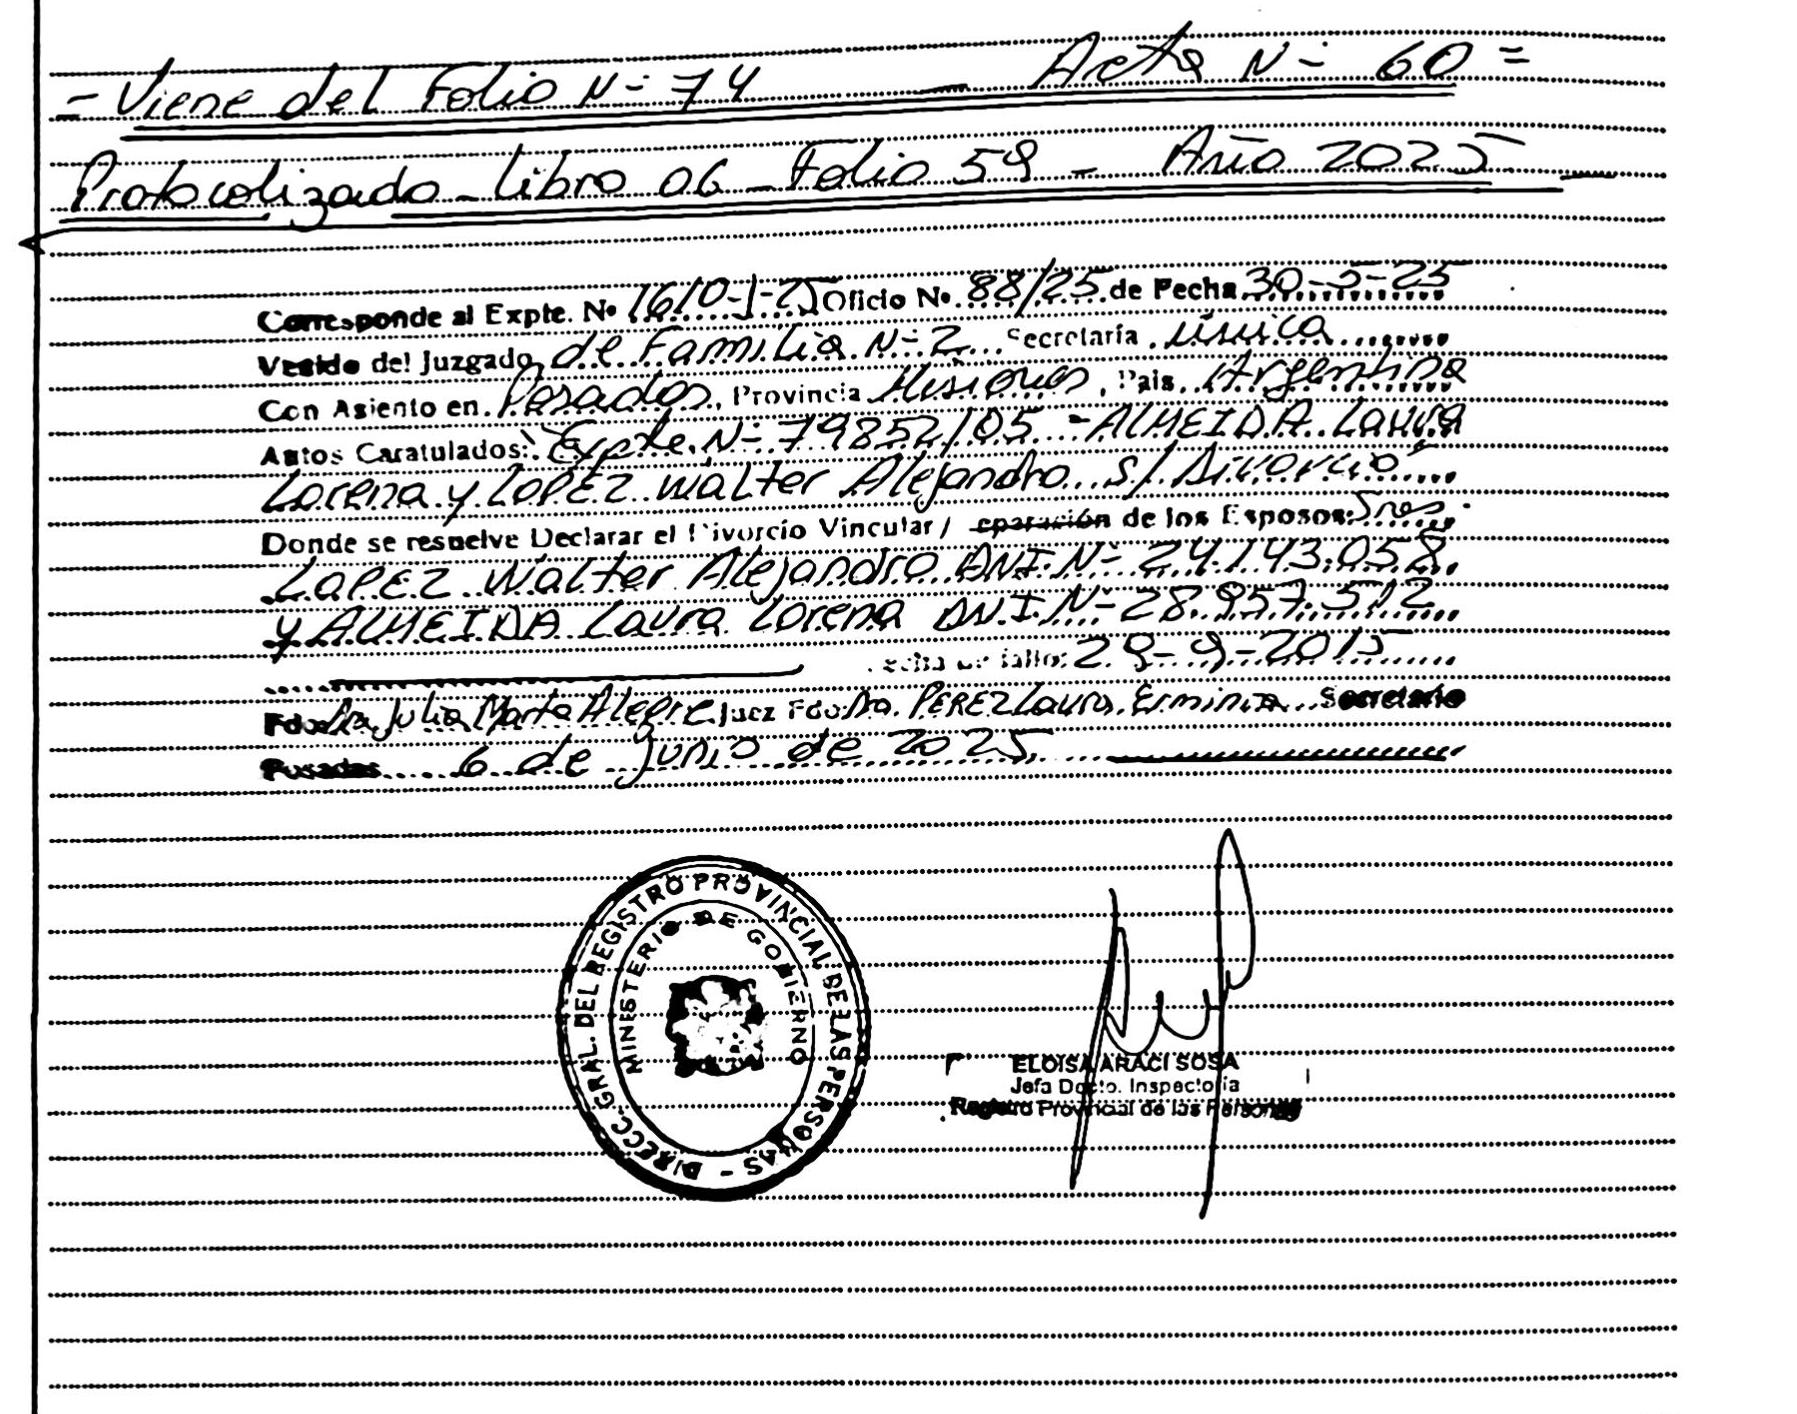 = Viene del Folio N- 74 — Acta N- 60 =
Protocolizado - Libro 06 - Folio 59 - Año 2025 —
Corresponde al Expte. Nº 1610-J-25 Oficio Nº 88/25 de Fecha 30-5-25
Venido del Juzgado de Familia N-2 Secretaría única
Con Asiento en Posadas, Provincia Misiones, Pais Argentina
Autos Caratulados: "Expte. N- 79852/05 - ALMEIDA Laura
Lorena y LOPEZ Walter Alejandro s/ Divorcio"
Donde se resuelve Declarar el Divorcio Vincular / eparación de los Esposos: Sres.
LOPEZ Walter Alejandro DNI. N- 24.143.058
y ALMEIDA Laura Lorena DN.I. N- 28.957.512
Fecha de fallo: 29-9-2015
Fdo. Dra. Julia Marta Alegre Juez Fdo. Dra. PEREZ Laura Erminia Secretario
Posadas 6 de Junio de 2025
DIRECC. GRAL. DEL REGISTRO PROVINCIAL DE LAS PERSONAS -
MINISTERIO DE GOBIERNO
ELOISA ARACI SOSA
Jefa Dpcto. Inspectoría
Registro Provincial de las Personas